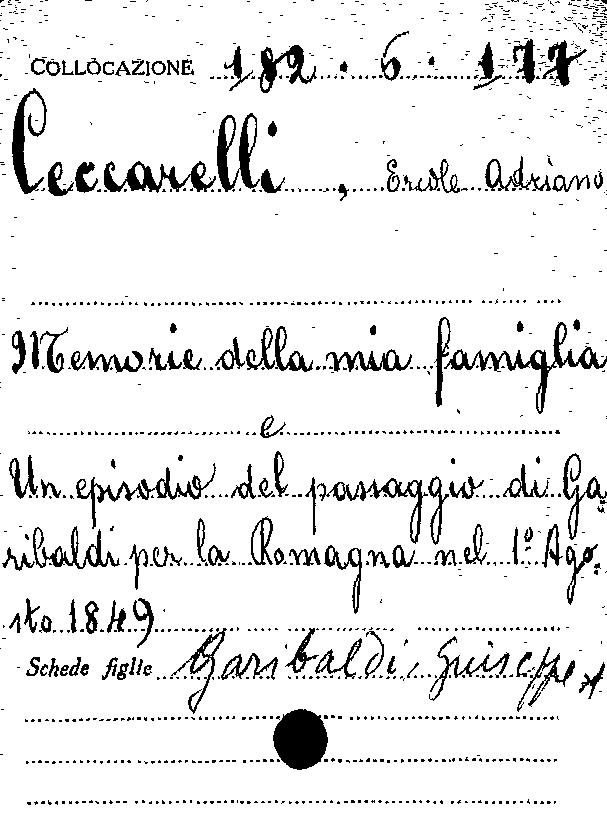 COLLOCAZIONE 182.6.177
Ceccarelli, Ercole Adriano
Memorie della mia famiglia
e
Un episodio del passaggio di Ga=
ribaldi per la Romagna nel 1º Ago=
sto 1849
Schede figlie Garibaldi, Guiseppe *